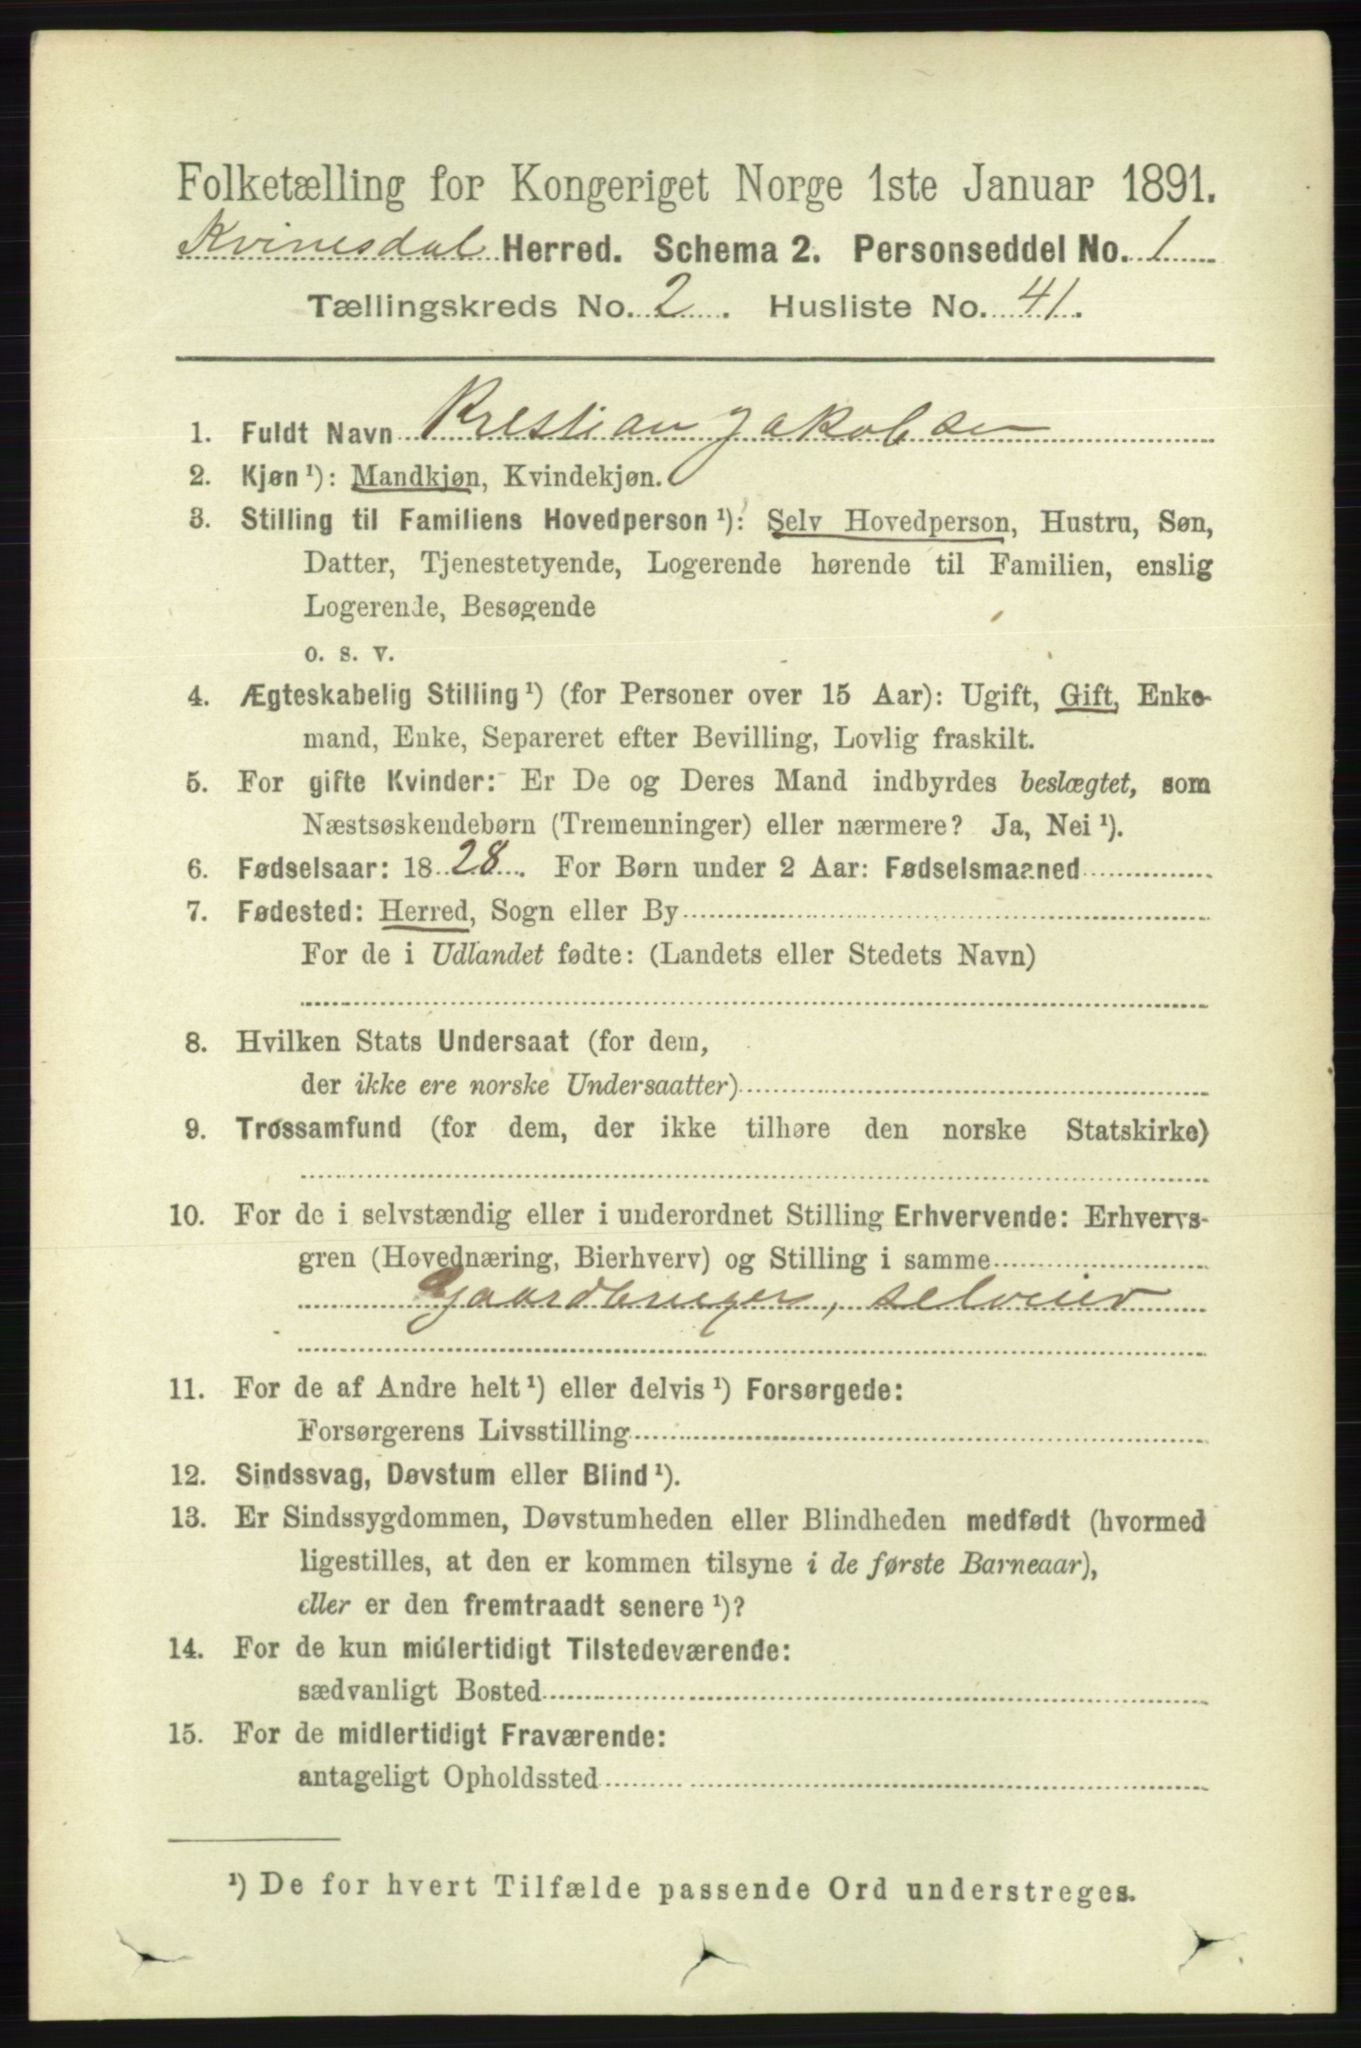 Folketælling for Kongeriget Norge 1ste Januar 1891.
Kvinesdal Herred. Schema 2. Personseddel No. 1
Tællingskreds No. 2. Husliste No. 41.
1. Fuldt Navn Krestian Jakobsen
2. Kjøn ¹): Mandkjøn, Kvindekjøn.
3. Stilling til Familiens Hovedperson ¹): Selv Hovedperson, Hustru, Søn,
Datter, Tjenestetyende, Logerende hørende til Familien, enslig
Logerende, Besøgende
o. s. v.
4. Ægteskabelig Stilling ¹) (for Personer over 15 Aar): Ugift, Gift, Enke-
mand, Enke, Separeret efter Bevilling, Lovlig fraskilt.
5. For gifte Kvinder: Er De og Deres Mand indbyrdes beslægtet, som
Næstsøskendebørn (Tremenninger) eller nærmere? Ja, Nei ¹).
6. Fødselsaar: 1828. For Børn under 2 Aar: Fødselsmaaned
7. Fødested: Herred, Sogn eller By
For de i Udlandet fødte: (Landets eller Stedets Navn)
8. Hvilken Stats Undersaat (for dem,
der ikke ere norske Undersaatter)
9. Trossamfund (for dem, der ikke tilhøre den norske Statskirke)
10. For de i selvstændig eller i underordnet Stilling Erhvervende: Erhvervs-
gren (Hovednæring, Bierhverv) og Stilling i samme
Gaardbruger, selveier
11. For de af Andre helt ¹) eller delvis ¹) Forsørgede:
Forsørgerens Livsstilling
12. Sindssvag, Døvstum eller Blind ¹).
13. Er Sindssygdommen, Døvstumheden eller Blindheden medfødt (hvormed
ligestilles, at den er kommen tilsyne i de første Barneaar),
eller er den fremtraadt senere ¹)?
14. For de kun midlertidigt Tilstedeværende:
sædvanligt Bosted
15. For de midlertidigt Fraværende:
antageligt Opholdssted
¹) De for hvert Tilfælde passende Ord understreges.